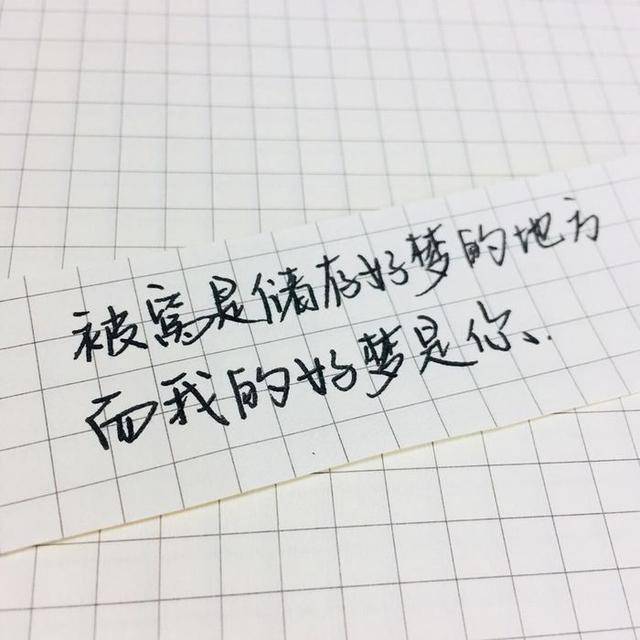 被窝是储存好梦的地方
而我的好梦是你、